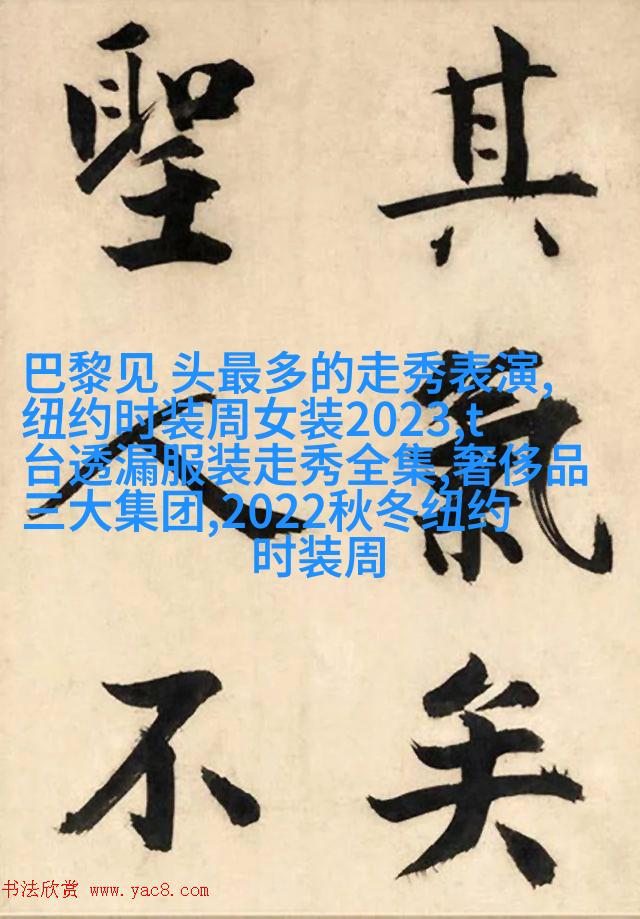 其氣矣
聖人不
巴黎见 头最多的走秀表演,
纽约时装周女装2023,t
台透漏服装走秀全集,奢侈品
三大集团,2022秋冬纽约
时装周
书法欣赏 www.yac8.com